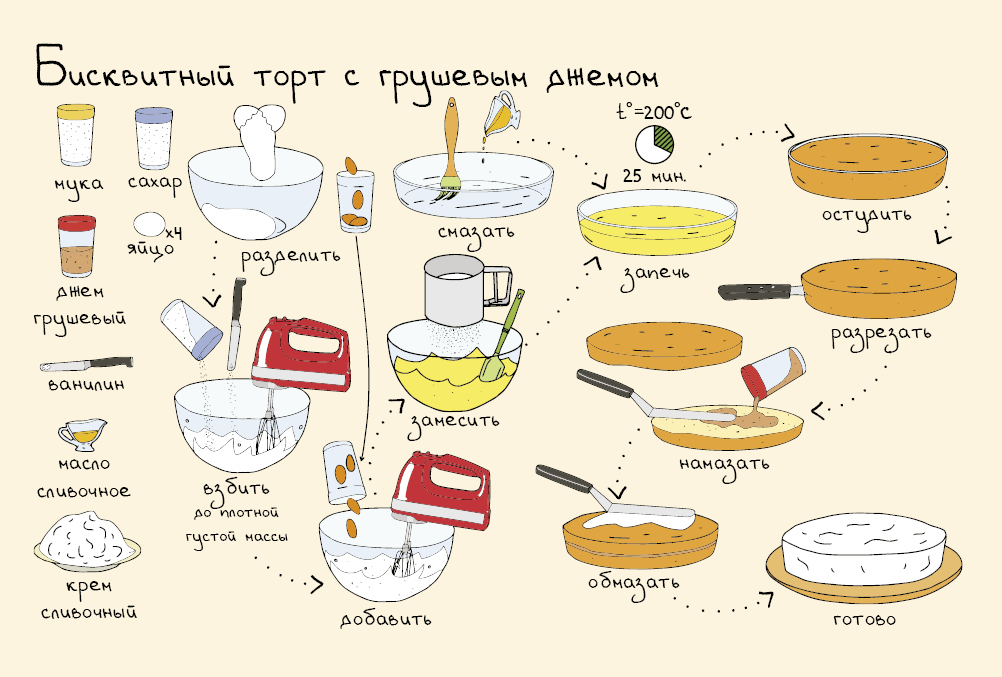 Бисквитный торт с грушевым джемом
мука
сахар
джем
грушевый
x4
яйцо
ванилин
масло
сливочное
крем
сливочный
разделить
взбить
до плотной
густой массы
добавить
смазать
замесить
t°=200°C
25 мин.
запечь
остудить
разрезать
намазать
обмазать
готово